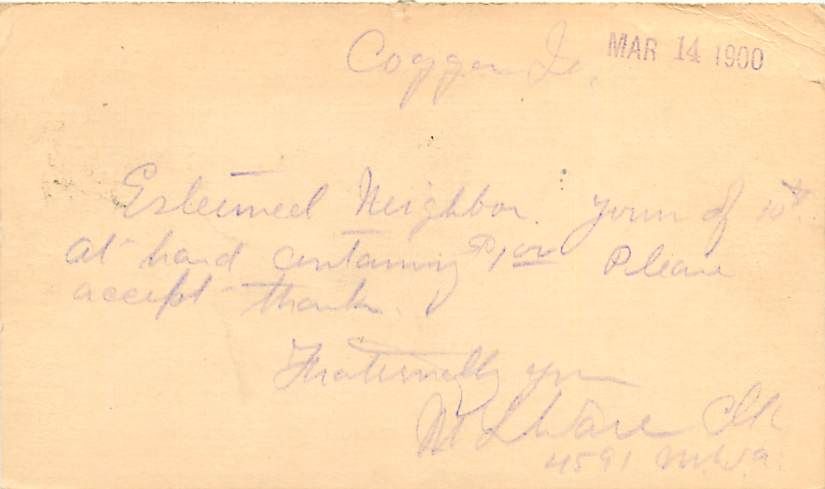 Coggon Ia. MAR 14 1900
Esteemed Neighbor. Yours of 10th
at hand containing $1.00 Please
accept thanks.
Fraternally yours
Ware Clk
4591 M.W.A.